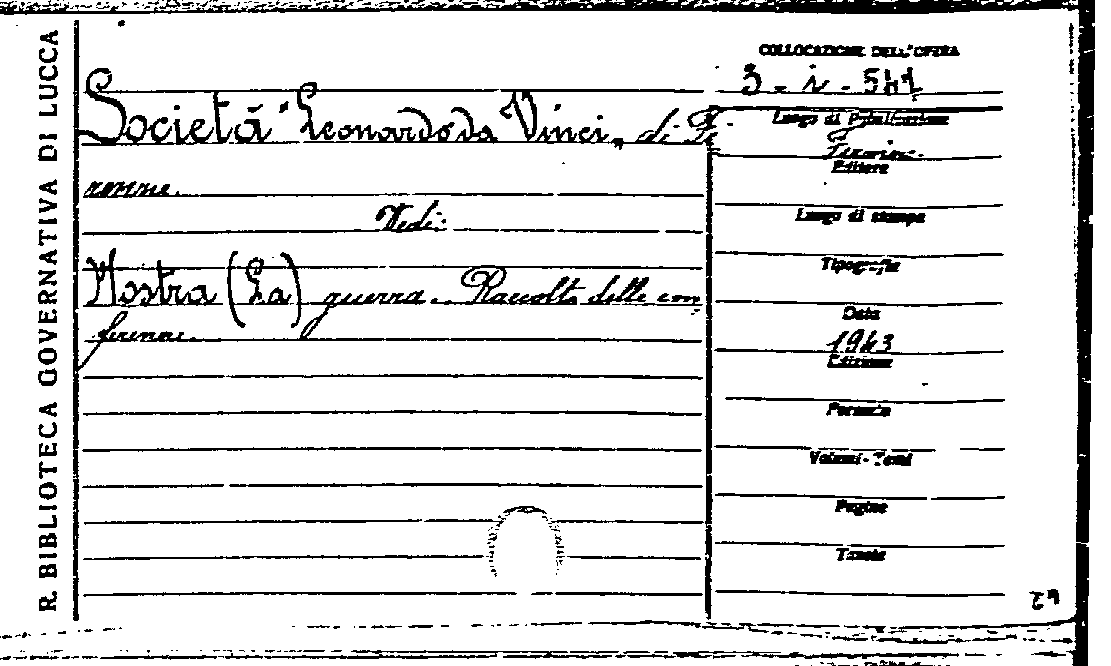 R. BIBLIOTECA GOVERNATIVA DI LUCCA
Società "Leonardo da Vinci" di Fi-
renze.
Vedi:
Mostra (La) guerra. Raccolta delle con
ferenze.
COLLOCAZIONE DELL'OPERA
3 - i - 541
Luogo di Pubblicazione
Firenze
Editore
Luogo di stampa
Tipografia
Data
1943
Edizione
Formato
Volumi - Tomi
Pagine
Tavole